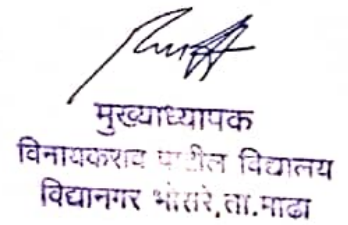 मुख्याध्यापक
विनायकराव पाटील विद्यालय
विद्यानगर भोसरे,ता.माढा